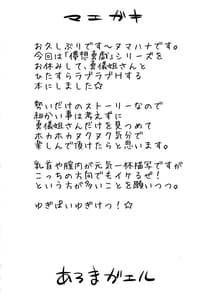 マエガキ
お久しぶりです〜ヌマハナです。
今回は「
お休みして、
ひたすらラブラブHする
本にしました☆
勢いだけのストーリーなので
細かい事は考えずに
だけを見つめて
ホカホカヌクヌク気分で
楽しんで頂けたらと思います。
乳首や膣内が元気一杯描写ですが
こっちの方向でもイケるぜ!
という方が多いことを願いつつ。
ゆきぱいゆきけつ!☆
あるまがエル